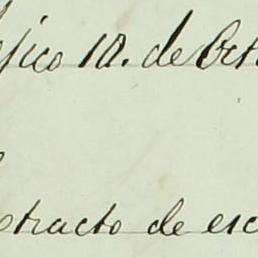 éjico 18. de Oct
xtracto de esc